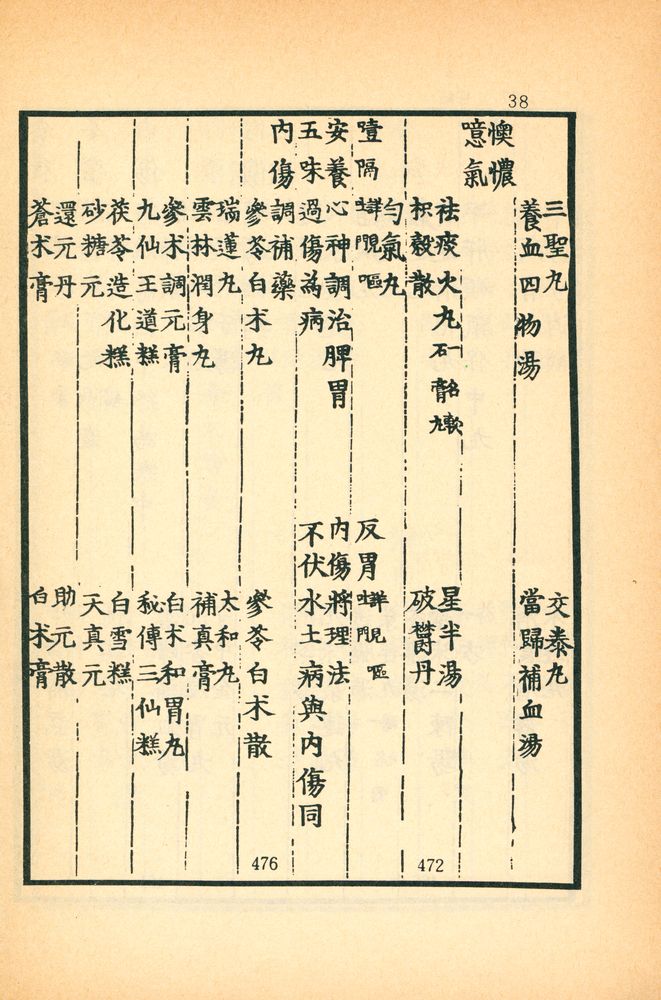 38
三聖丸
交泰丸
養血四物湯
當歸補血湯
懊憹
噫氣
祛痰火丸 一名 石青 軟丸
星半湯
枳殼散
破鬱丹
勻氣丸
噎隔 詳見嘔吐門
反胃 詳見嘔吐門
安養心神調治脾胃
內傷將理法
五味過傷為病
不伏水土病與內傷同
內傷調補藥
參苓白朮丸
參苓白朮散
瑞蓮丸
太和丸
雲林潤身丸
補真膏
參朮調元膏
白朮和胃丸
九仙王道糕
秘傳三仙糕
茯苓造化糕
白雪糕
砂糖元
天真元
還元丹
助元散
蒼朮膏
白朮膏
472
476